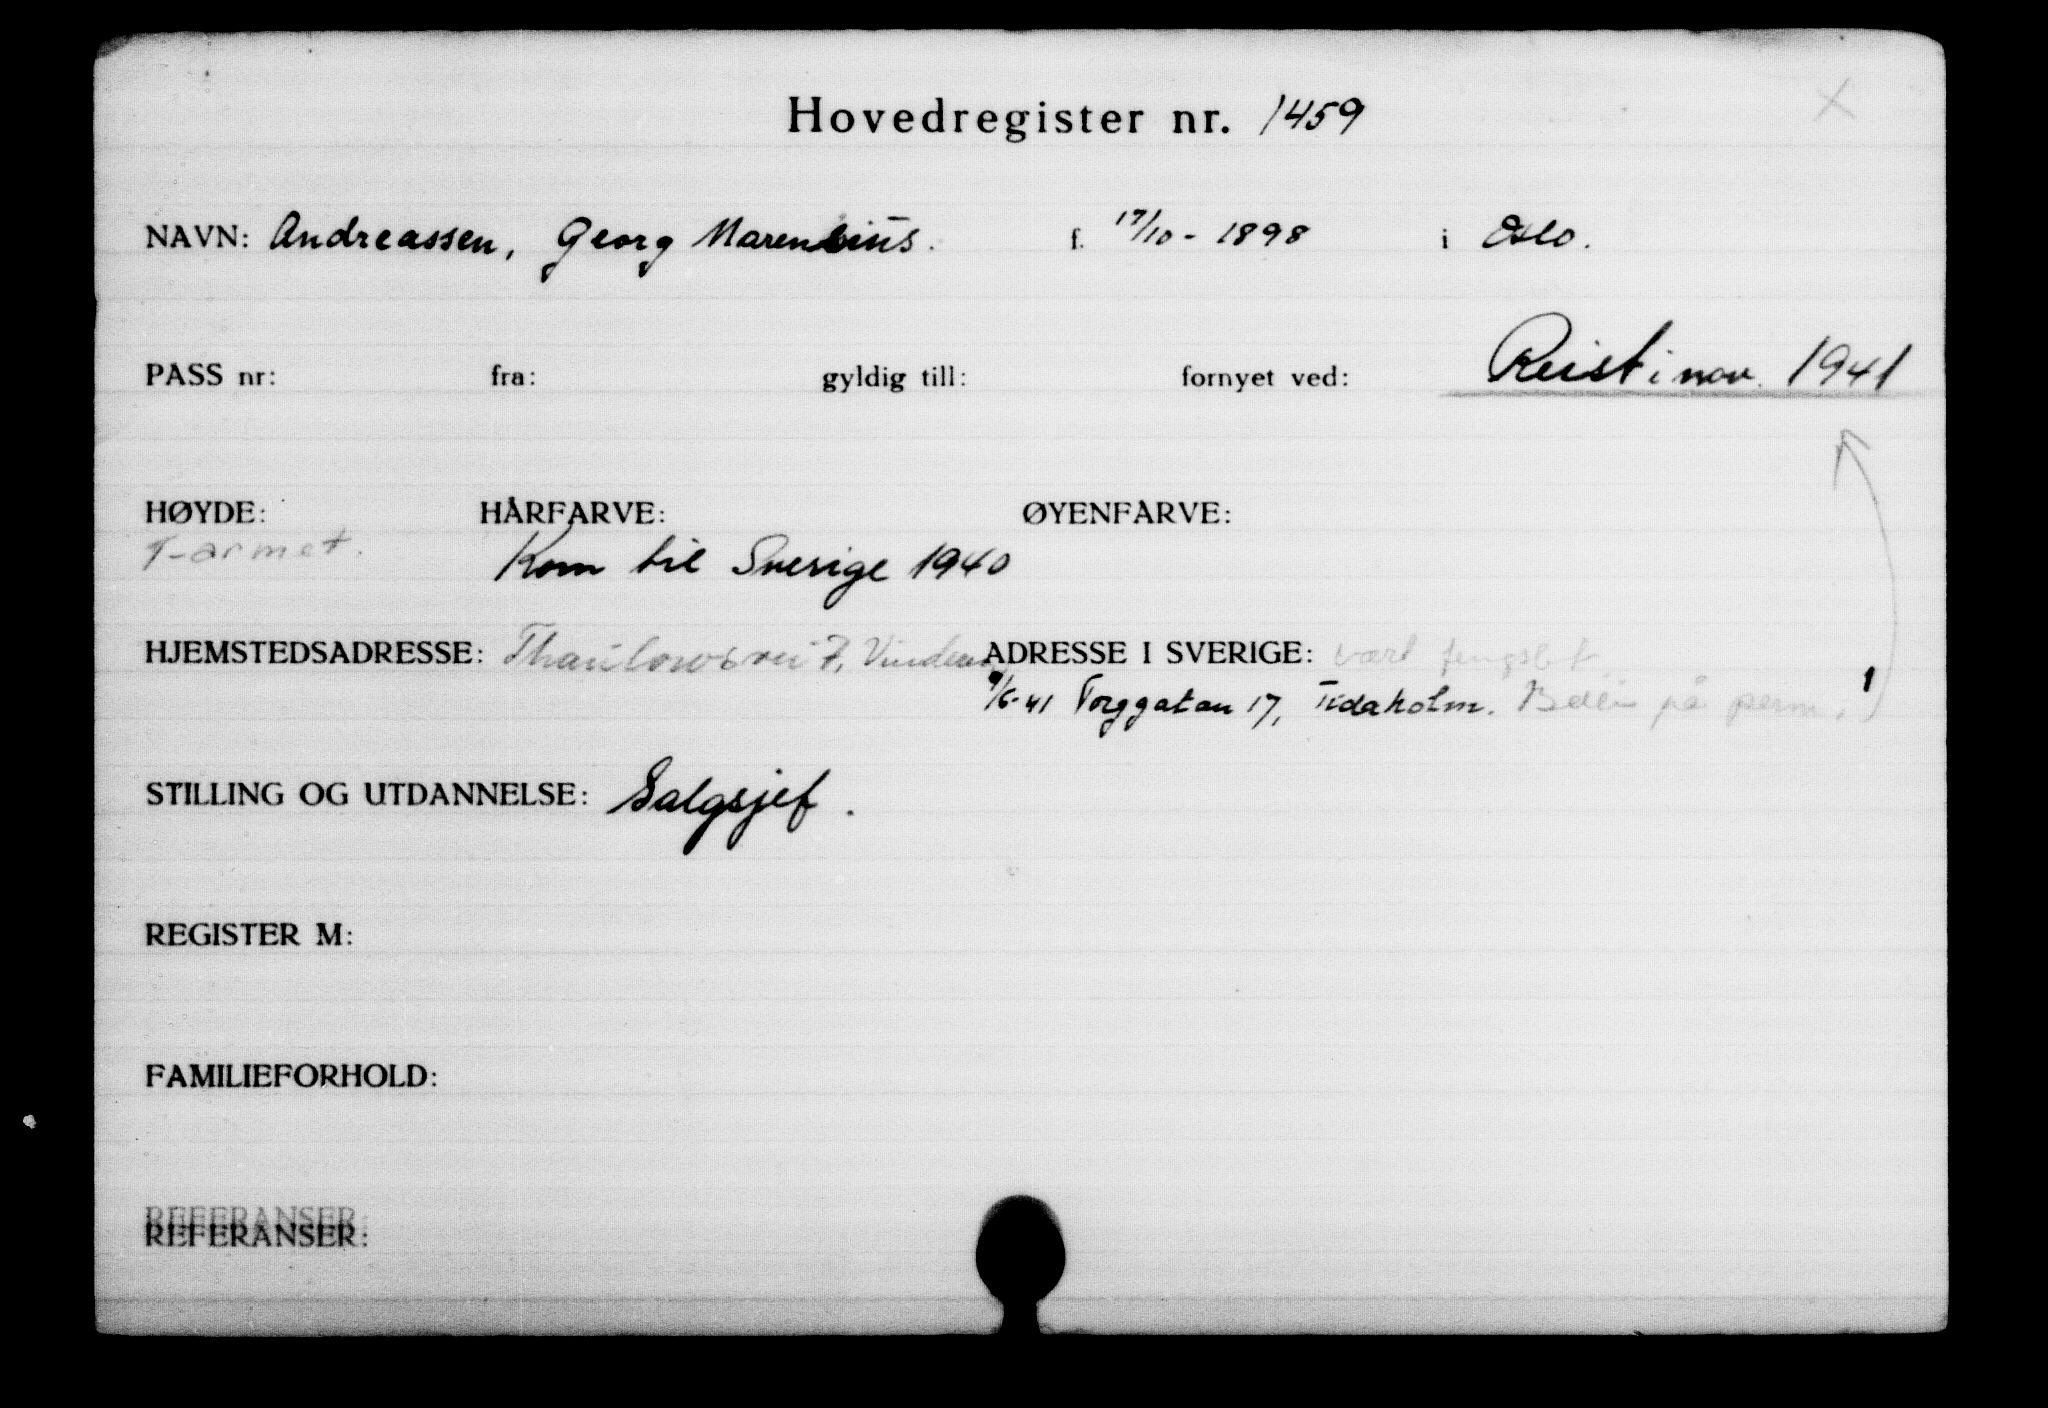 Hovedregister nr. 1459
NAVN: Andreassen, Georg f. 17/10 - 1898 i Oslo.
PASS nr: fra: gyldig till: fornyet ved: Reist i nov. 1941
HØYDE: HÅRFARVE: ØYENFARVE:
T-armet. Kom til Sverige 1940
HJEMSTEDSADRESSE: Thaulowsvei 7, Vinderen ADRESSE I SVERIGE: vært fengslet
9/6-41 Torggatan 17, Tidaholm. på perm.
STILLING OG UTDANNELSE: Salgsjef.
REGISTER M:
FAMILIEFORHOLD:
REFERANSER:
REFERANSER: